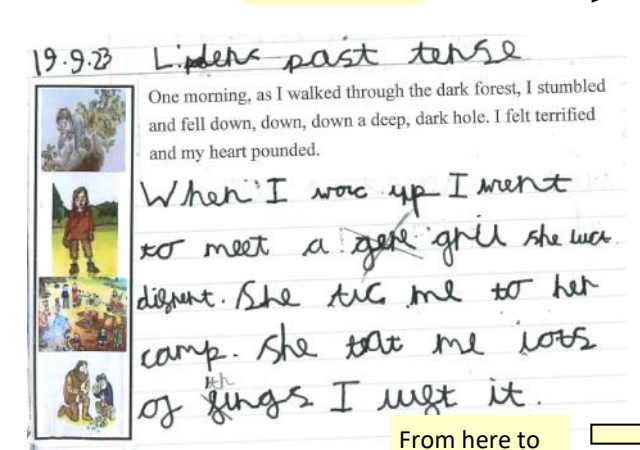 19.9.23 L.: past tense
One morning, as I walked through the dark forest, I stumbled
and fell down, down, down a deep, dark hole. I felt terrified
and my heart pounded.
When I woc up I went
to meet a gril she
difrent. She tic me to her
camp. She tat me lots
of things I it.
From here to